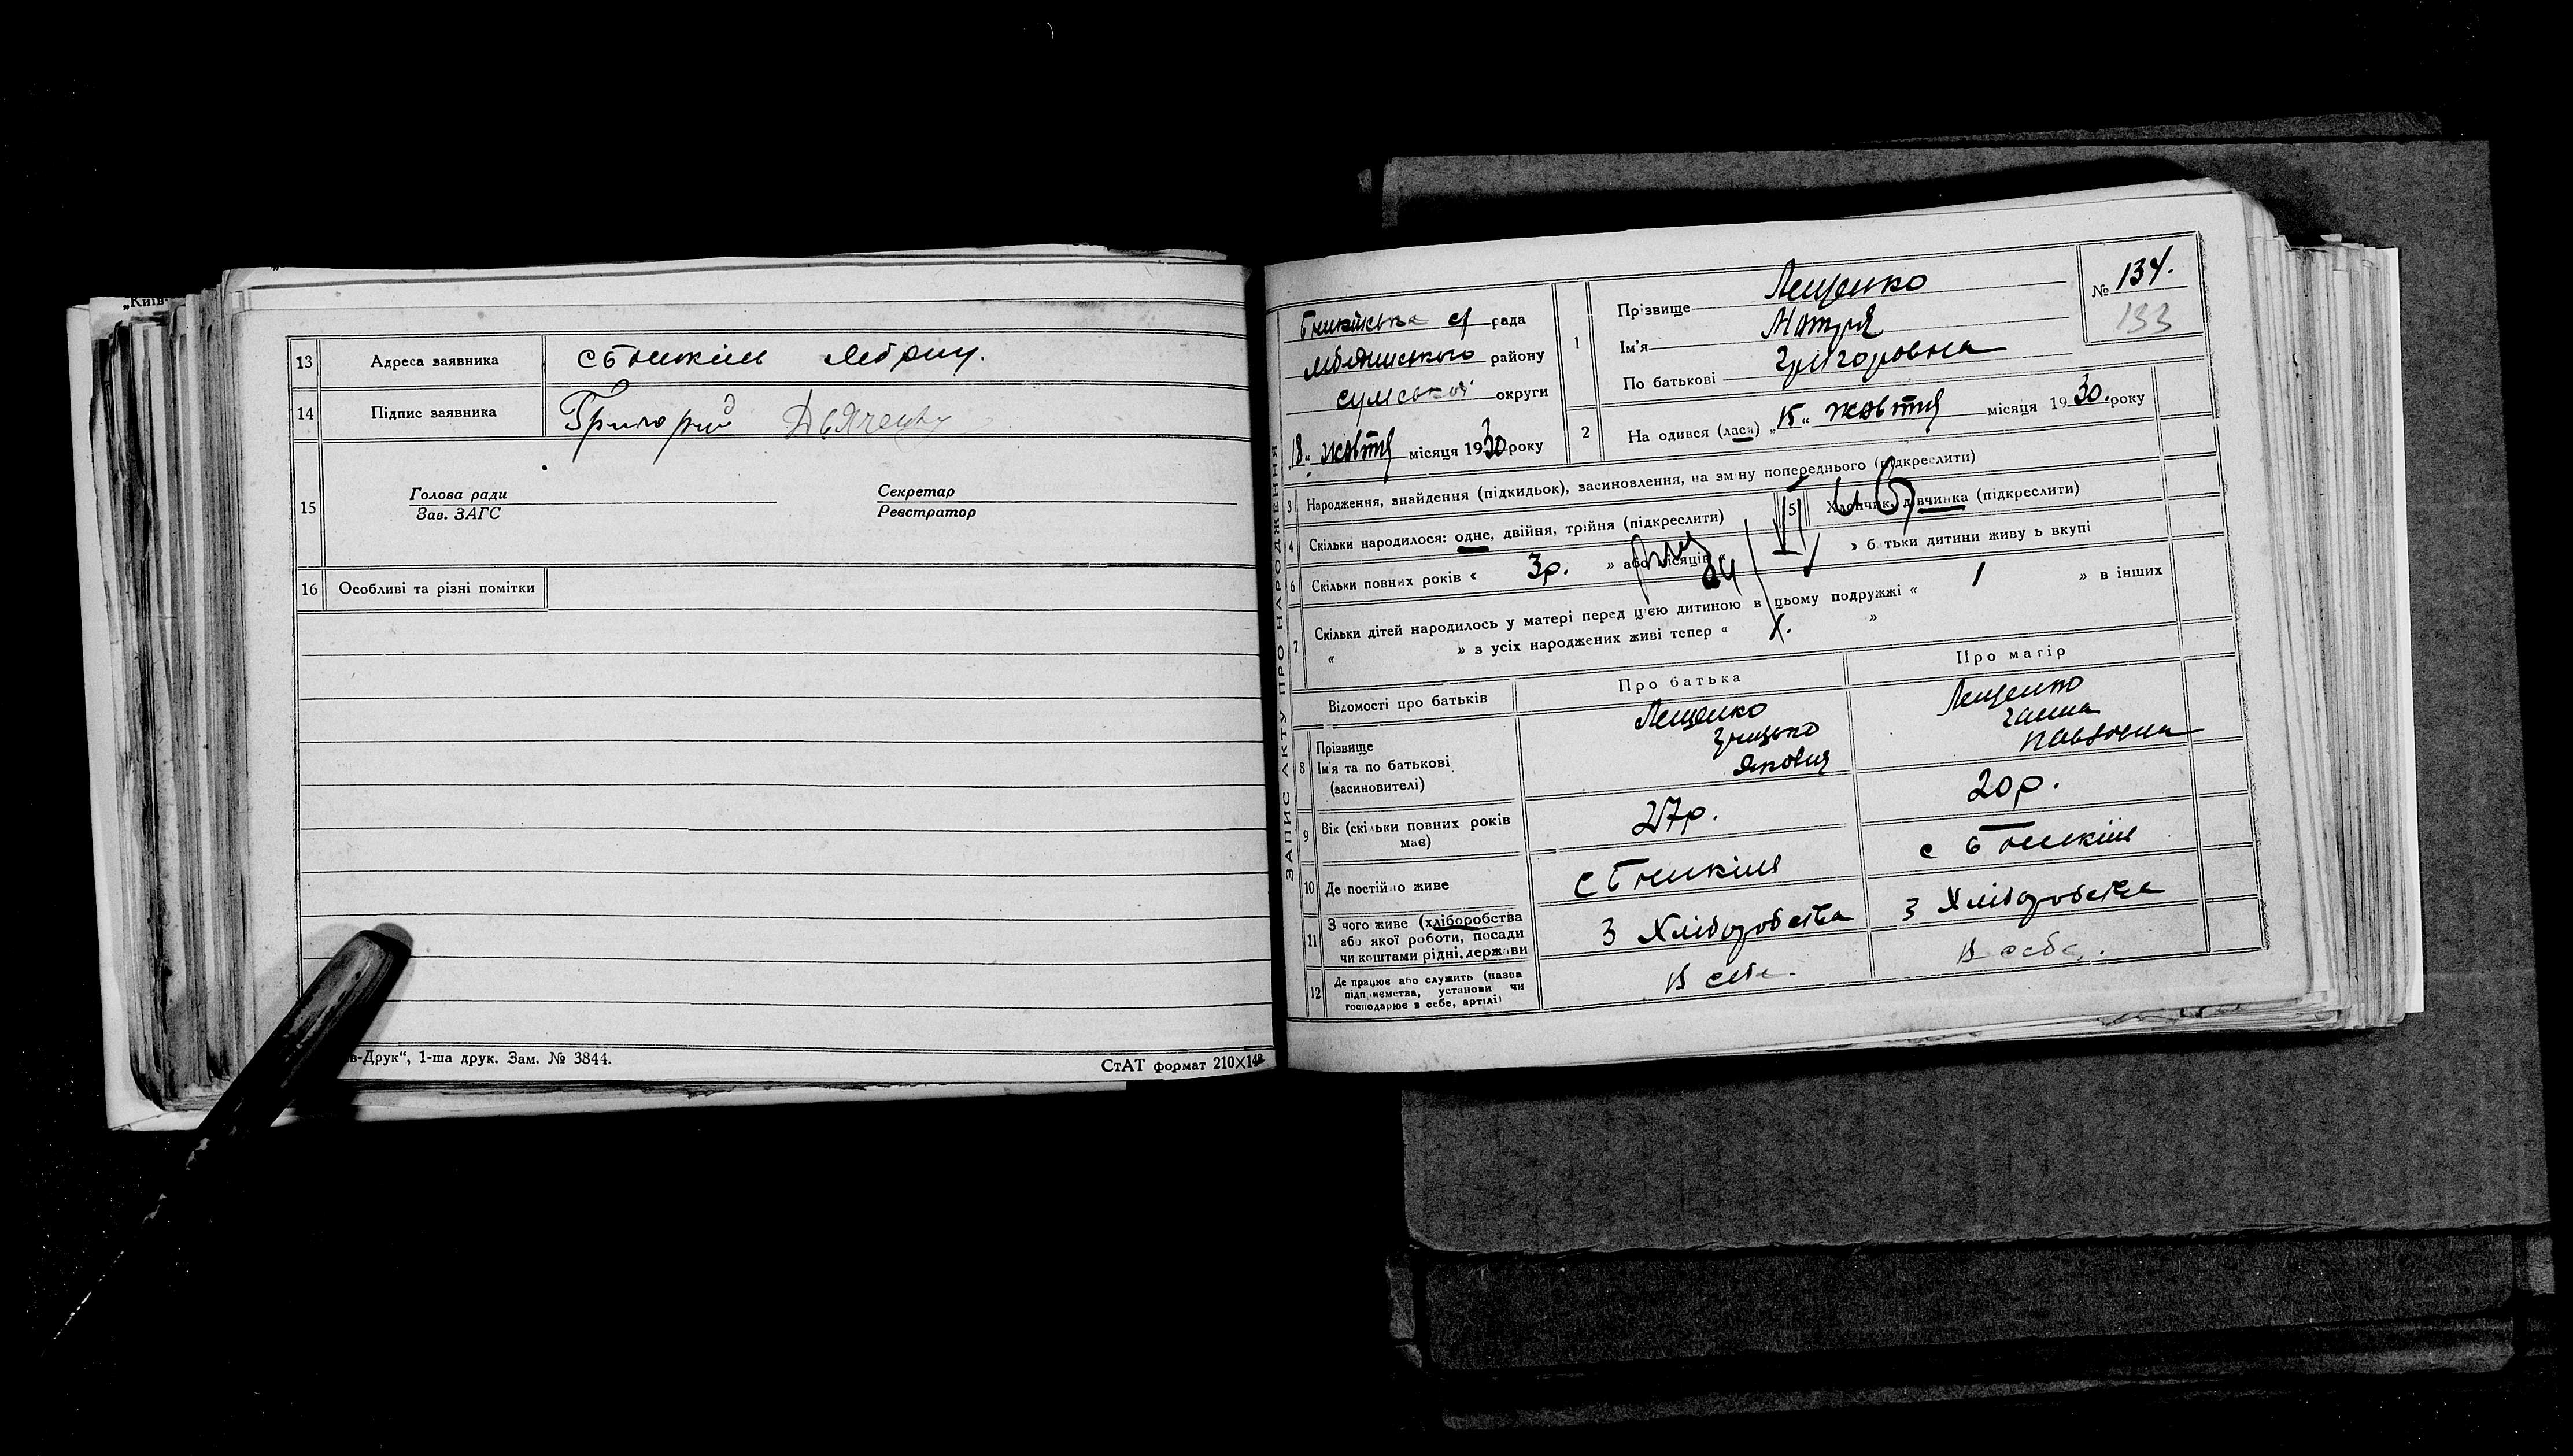 „Київ-
13 Адреса заявника с Бишкінь Лебрну.
14 Підпис заявника Григорий Дьяченко
15 Голова ради Секретар
Зав. ЗАГС Реєстратор
16 Особливі та різні помітки
в-Друк“, 1-ша друк. Зам. № 3844.
СтАТ формат 210×148
ЗАПИС АКТУ ПРО НАРОДЖЕННЯ
Бишкінська с/ рада
Лебединського району
Сумської округи
„18„ жовтня місяця 1930 року
1 Прізвище Лещенко
Ім'я Мотря
По батькові Григоровна
№ 134.
133
2 На одився (лася) „15„ жовтня місяця 1930. року
3 Народження, знайдення (підкидьок), засиновлення, на зміну попереднього (підкреслити)
4 Скільки народилося: одне, двійня, трійня (підкреслити)
5 Хлопчик, дівчинка (підкреслити)
6 Скільки повних років « 3р. » або місяців « » батьки дитини живуть вкупі
7 Скільки дітей народилось у матері перед цією дитиною в цьому подружжі « 1 » в інших
« » з усіх народжених живі тепер « 1. »
Відомості про батьків Про батька Про матір
8 Прізвище Лещенко Лещенко
Ім'я та по батькові Грицько Ганна
(засиновителі) Якович Павловна
9 Вік (скільки повних років має) 27р. 20р.
10 Де постійно живе с Бишкінь с Бишкінь
11 З чого живе (хліборобства З Хліборобства З Хліборобства
або якої роботи, посади
чи коштами рідні, держави
12 Де працює або служить (назва В себе. В себе.
підприємства, установи чи
господарює в себе, артілі)